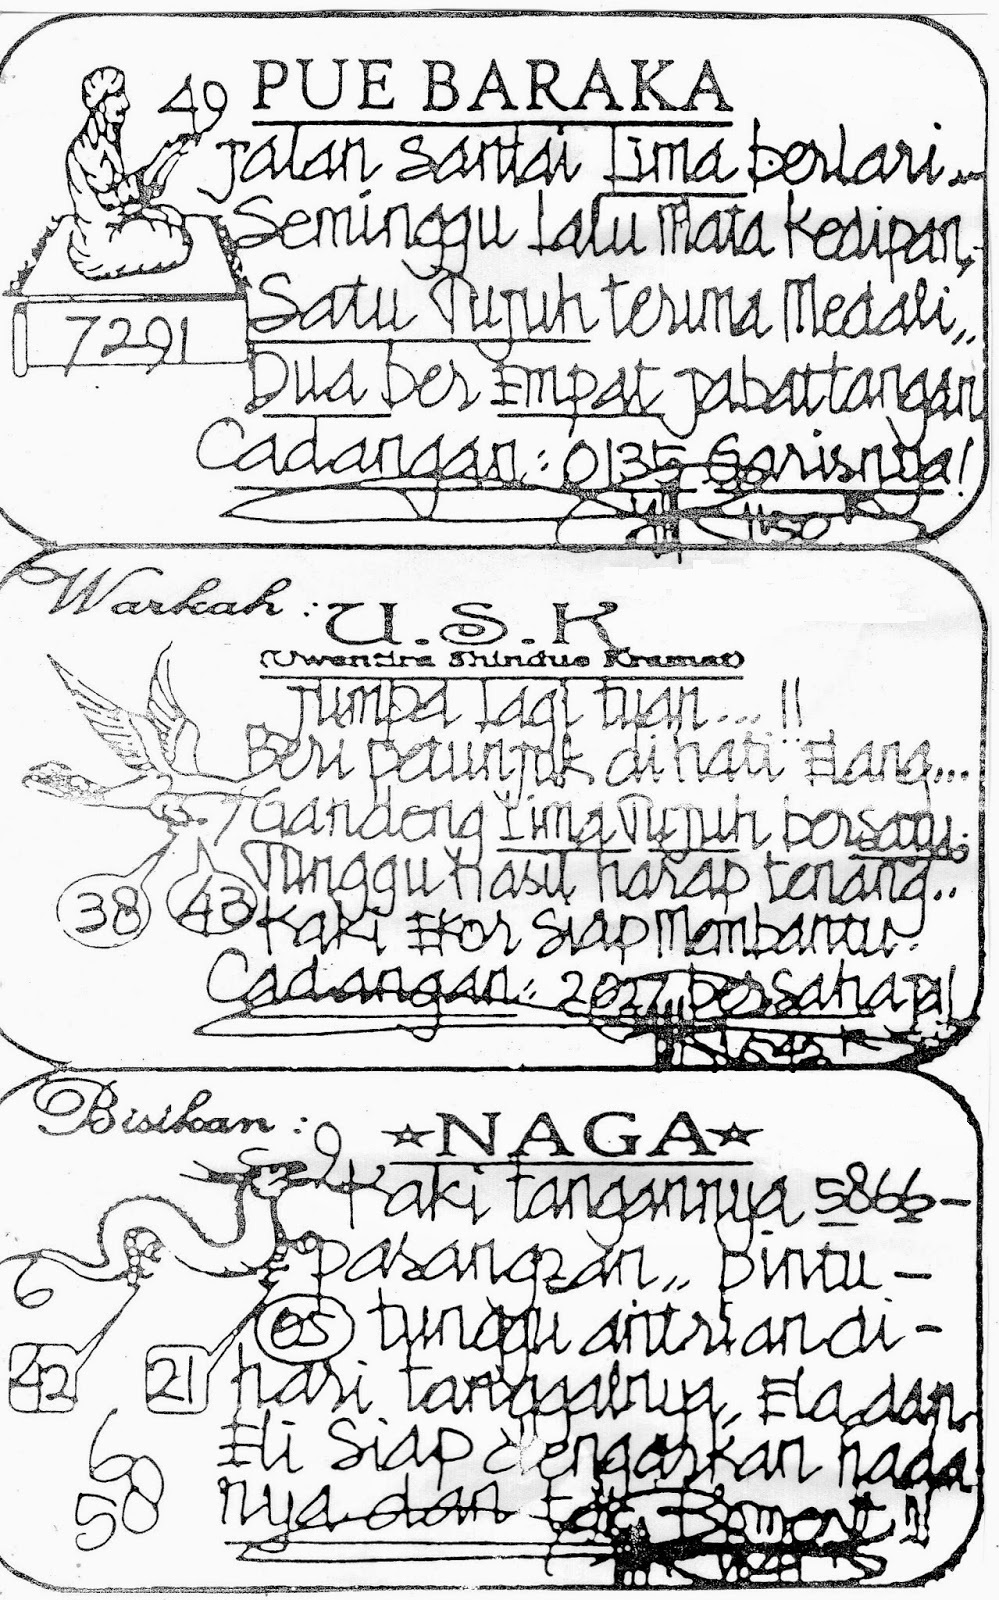 49 PUE BARAKA
jalan santai Lima berlari...
Seminggu lalu Mata Kedipan,,
Satu Tujuh terima Medali,,
7291
Dua ber Empat jabattangan
Cadangan : 0135 Garisnya!
Warkah : U.S.K
(Uwentira Shinduo Kramat)
jumpa lagi tuan... !!
Beri petunjuk di hati Elang...
7 Gandeng Lima Tujuh bersatu
38 43
Tunggu hasil harap tenang..
Kaki Ekor Siap Membantu..
Cadangan : 2027 bersahaja!
Bisikan : ☆NAGA☆
9
Kaki tangannya 5866 -
6 pasangzan,, pintu -
05 tunggu antrian di -
42 21 hari tanggalnya,, Ela dan
Eli Siap dengarkan naga
nya dan
60
58